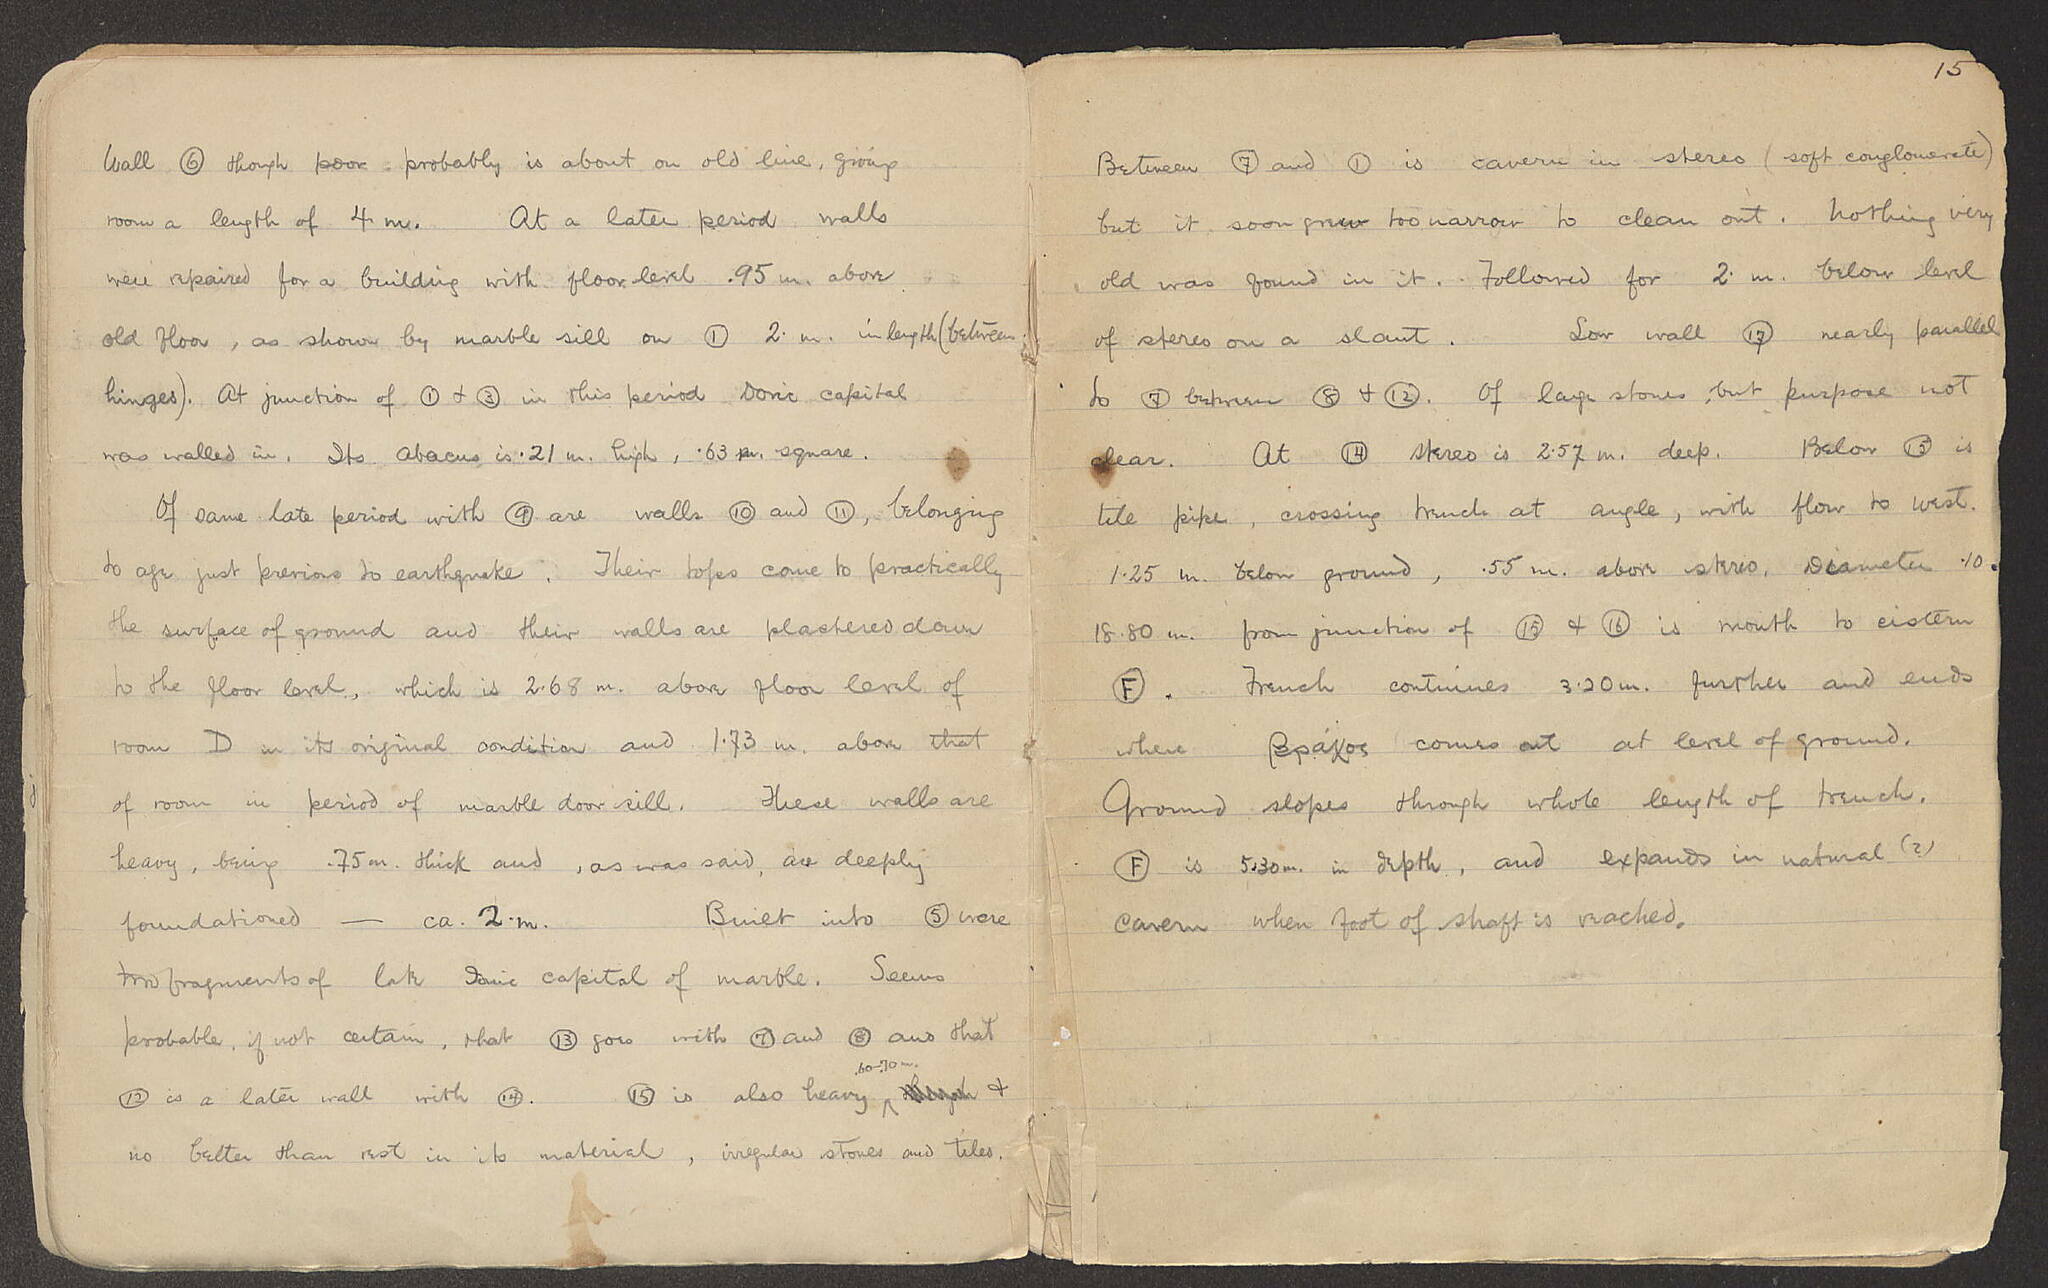 Wall ⑥ though poor probably is about on old line, giving
room a length of 4 m. At a later period walls
were repaired for a building with floor level .95 m. above
old floor, as shown by marble sill on ① 2. m. in length (between
hinges). At junction of ① & ③ in this period Doric capital
was walled in. Its abacus is .21 m. high, .63 m. square.
Of same late period with ⑨ are walls ⑩ and ⑪, belonging
to age just previous to earthquake. Their tops come to practically
the surface of ground and their walls are plastered down
to the floor level, which is 2.68 m. above floor level of
room D in its original condition and 1.73 m. above that
of room in period of marble door sill. These walls are
heavy, being .75 m. thick and, as was said, are deeply
foundationed — ca. 2. m. Built into ⑤ were
two fragments of late Doric capital of marble. Seems
probable, if not certain, that ⑬ goes with ⑦ and ⑧ and that
⑫ is a later wall with ⑭. ⑮ is also heavy .60-.70 m. &
no better than rest in its material, irregular stones and tiles.
15
Between ⑦ and ① is cavern in stereo (soft conglomerate)
but it soon grew too narrow to clean out. Nothing very
old was found in it. Followed for 2. m. below level
of stereo on a slant. Low wall ⑰ nearly parallel
to ⑦ between ⑧ & ⑫. Of large stones, but purpose not
clear. At ⑭ stereo is 2.57 m. deep. Below ⑮ is
tile pipe, crossing trench at angle, with flow to west.
1.25 m. below ground, .55 m. above stereo. Diameter .10.
18.80 m. from junction of ⑮ & ⑯ is mouth to cistern
Ⓕ. Trench continues 3.20 m. further and ends
where βράχος comes out at level of ground.
Ground slopes through whole length of trench.
Ⓕ is 5.30 m. in depth, and expands in natural (?)
cavern when foot of shaft is reached.